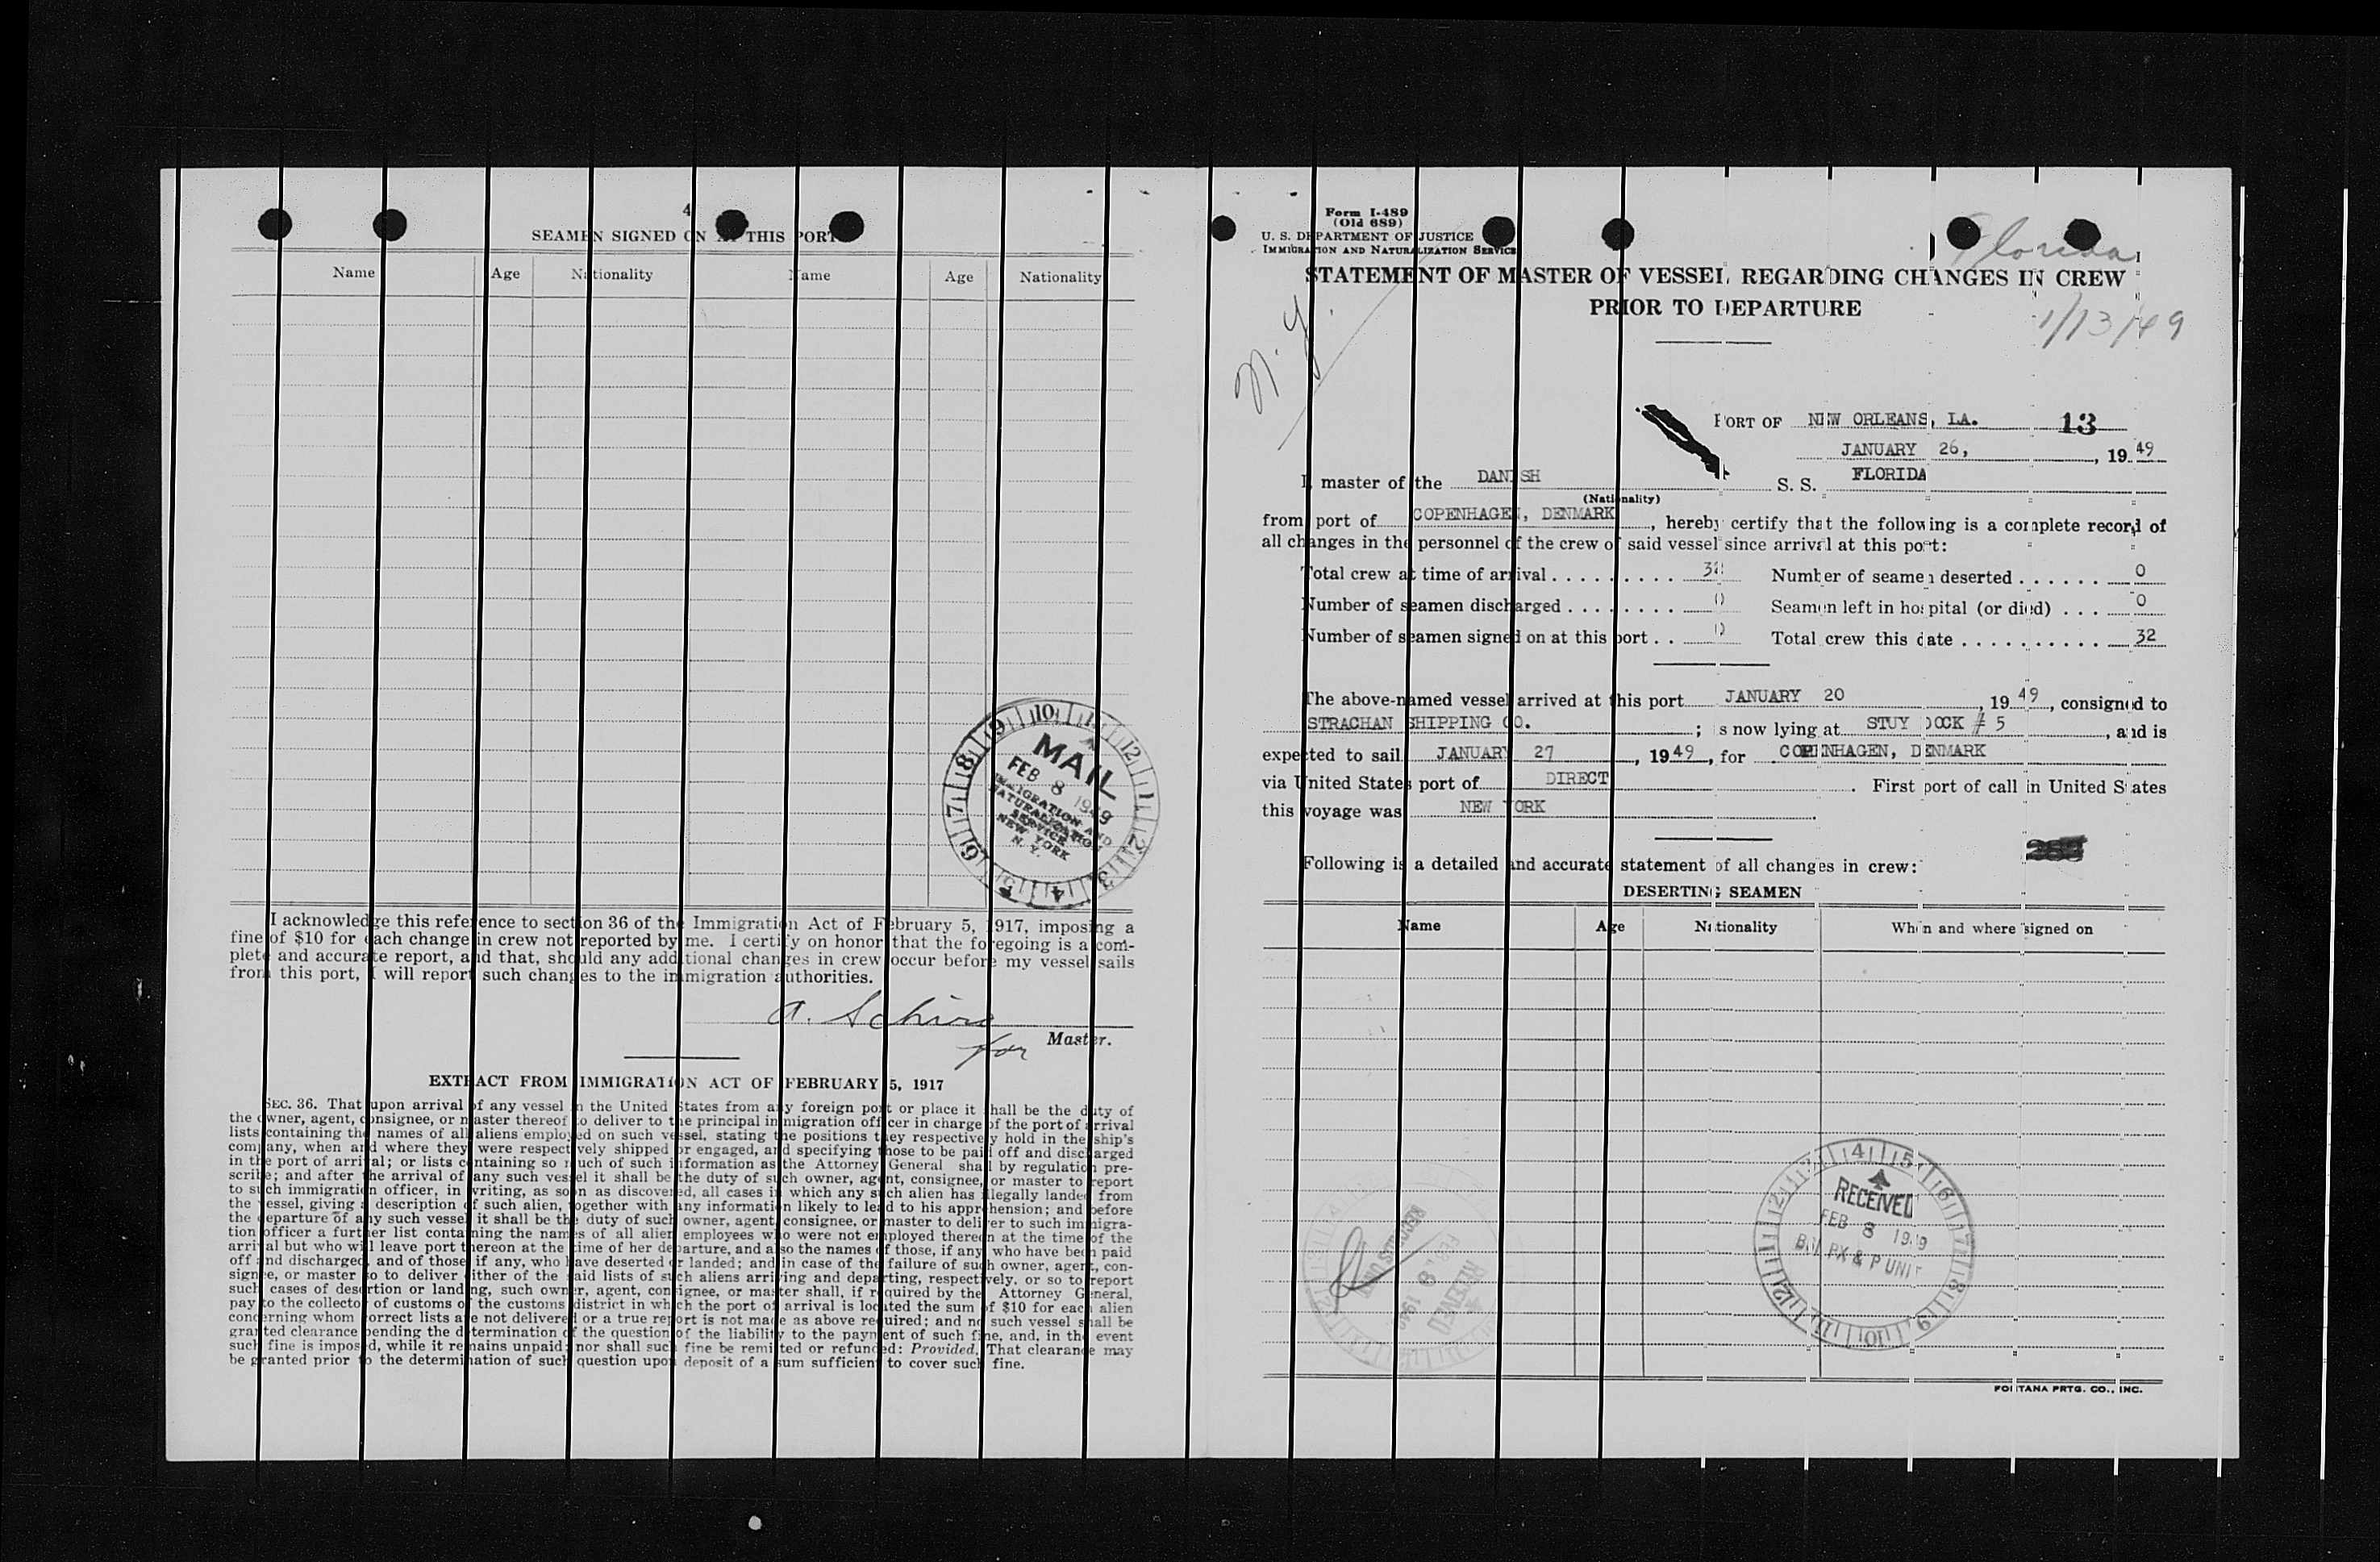 4
SEAMEN SIGNED ON AT THIS PORT
Name Age Nationality Name Age Nationality
MAIL
FEB 8 1949
IMMIGRATION AND
NATURALIZATION
SERVICE
NEW YORK
N. Y.
I acknowledge this reference to section 36 of the Immigration Act of February 5, 1917, imposing a
fine of $10 for each change in crew not reported by me. I certify on honor that the foregoing is a com-
plete and accurate report, and that, should any additional changes in crew occur before my vessel sails
from this port, I will report such changes to the immigration authorities.
A. Schiro
for Master.
EXTRACT FROM IMMIGRATION ACT OF FEBRUARY 5, 1917
SEC. 36. That upon arrival of any vessel in the United States from any foreign port or place it shall be the duty of
the owner, agent, consignee, or master thereof to deliver to the principal immigration officer in charge of the port of arrival
lists containing the names of all aliens employed on such vessel, stating the positions they respectively hold in the ship's
company, when and where they were respectively shipped or engaged, and specifying those to be paid off and discharged
in the port of arrival; or lists containing so much of such information as the Attorney General shall by regulation pre-
scribe; and after the arrival of any such vessel it shall be the duty of such owner, agent, consignee, or master to report
to such immigration officer, in writing, as soon as discovered, all cases in which any such alien has illegally landed from
the vessel, giving a description of such alien, together with any information likely to lead to his apprehension; and before
the departure of any such vessel it shall be the duty of such owner, agent, consignee, or master to deliver to such immigra-
tion officer a further list containing the names of all alien employees who were not employed thereon at the time of the
arrival but who will leave port thereon at the time of her departure, and also the names of those, if any, who have been paid
off and discharged, and of those, if any, who have deserted or landed; and in case of the failure of such owner, agent, con-
signee, or master so to deliver either of the said lists of such aliens arriving and departing, respectively, or so to report
such cases of desertion or landing, such owner, agent, consignee, or master shall, if required by the Attorney General,
pay to the collector of customs of the customs district in which the port of arrival is located the sum of $10 for each alien
concerning whom correct lists are not delivered or a true report is not made as above required; and no such vessel shall be
granted clearance pending the determination of the question of the liability to the payment of such fine, and, in the event
such fine is imposed, while it remains unpaid; nor shall such fine be remitted or refunded: Provided, That clearance may
be granted prior to the determination of such question upon deposit of a sum sufficient to cover such fine.
Form I-489
(Old 689)
U. S. DEPARTMENT OF JUSTICE
IMMIGRATION AND NATURALIZATION SERVICE
Florida
STATEMENT OF MASTER OF VESSEL REGARDING CHANGES IN CREW
PRIOR TO DEPARTURE
1/13/49
N.Y.
PORT OF NEW ORLEANS, LA. 13
JANUARY 26, , 19 49
I, master of the DANISH S. S. FLORIDA
(Nationality)
from port of COPENHAGEN, DENMARK , hereby certify that the following is a complete record of
all changes in the personnel of the crew of said vessel since arrival at this port:
Total crew at time of arrival 32 Number of seamen deserted 0
Number of seamen discharged 0 Seamen left in hospital (or died) 0
Number of seamen signed on at this port 0 Total crew this date 32
The above-named vessel arrived at this port JANUARY 20 , 19 49 , consigned to
STRACHAN SHIPPING CO. ; is now lying at STUY DOCK # 5 , and is
expected to sail JANUARY 27 , 19 49 , for COPENHAGEN, DENMARK
via United States port of DIRECT . First port of call in United States
this voyage was NEW YORK .
Following is a detailed and accurate statement of all changes in crew:
DESERTING SEAMEN
Name Age Nationality When and where signed on
RECEIVED
FEB 8 1949
RECEIVED
FEB 8 1949
FONTANA PRTG. CO., INC.